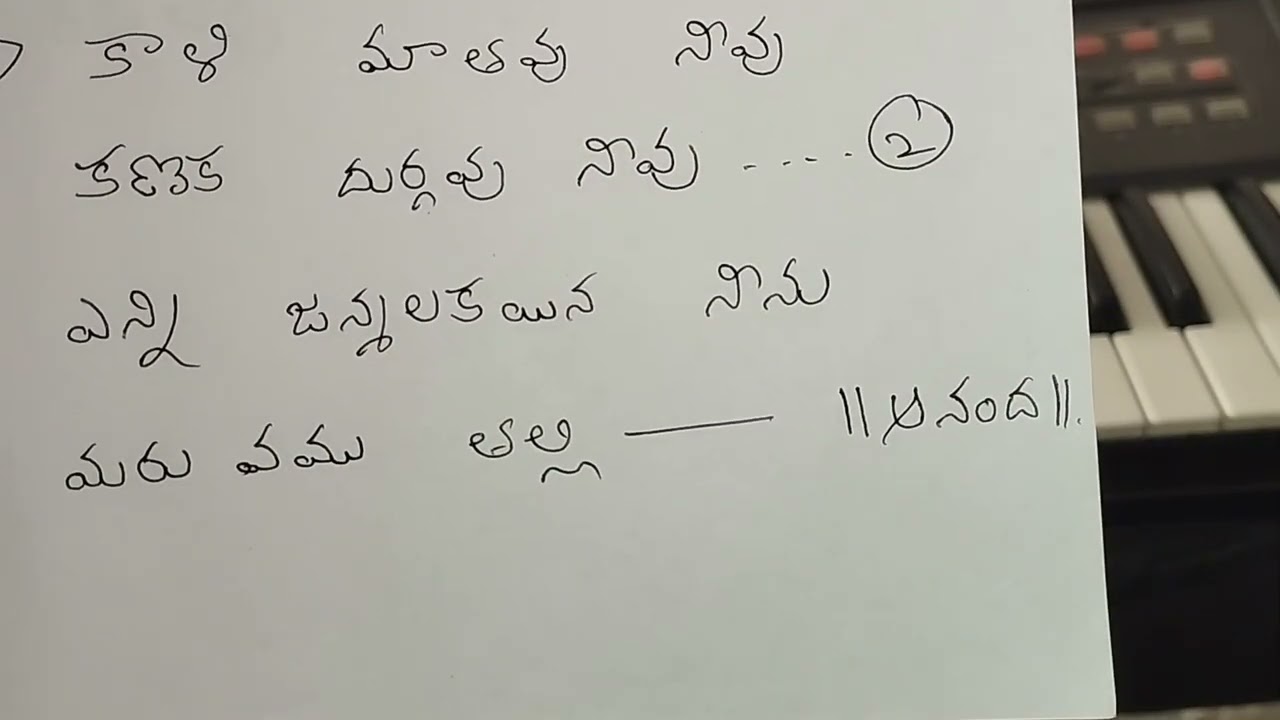 ) కాళి మాతవు నీవు
కణక దుర్గవు నీవు ---- 2
ఎన్ని జన్మలకయిన నీను
మరు వము తల్లి —— ||ఆనంద||.